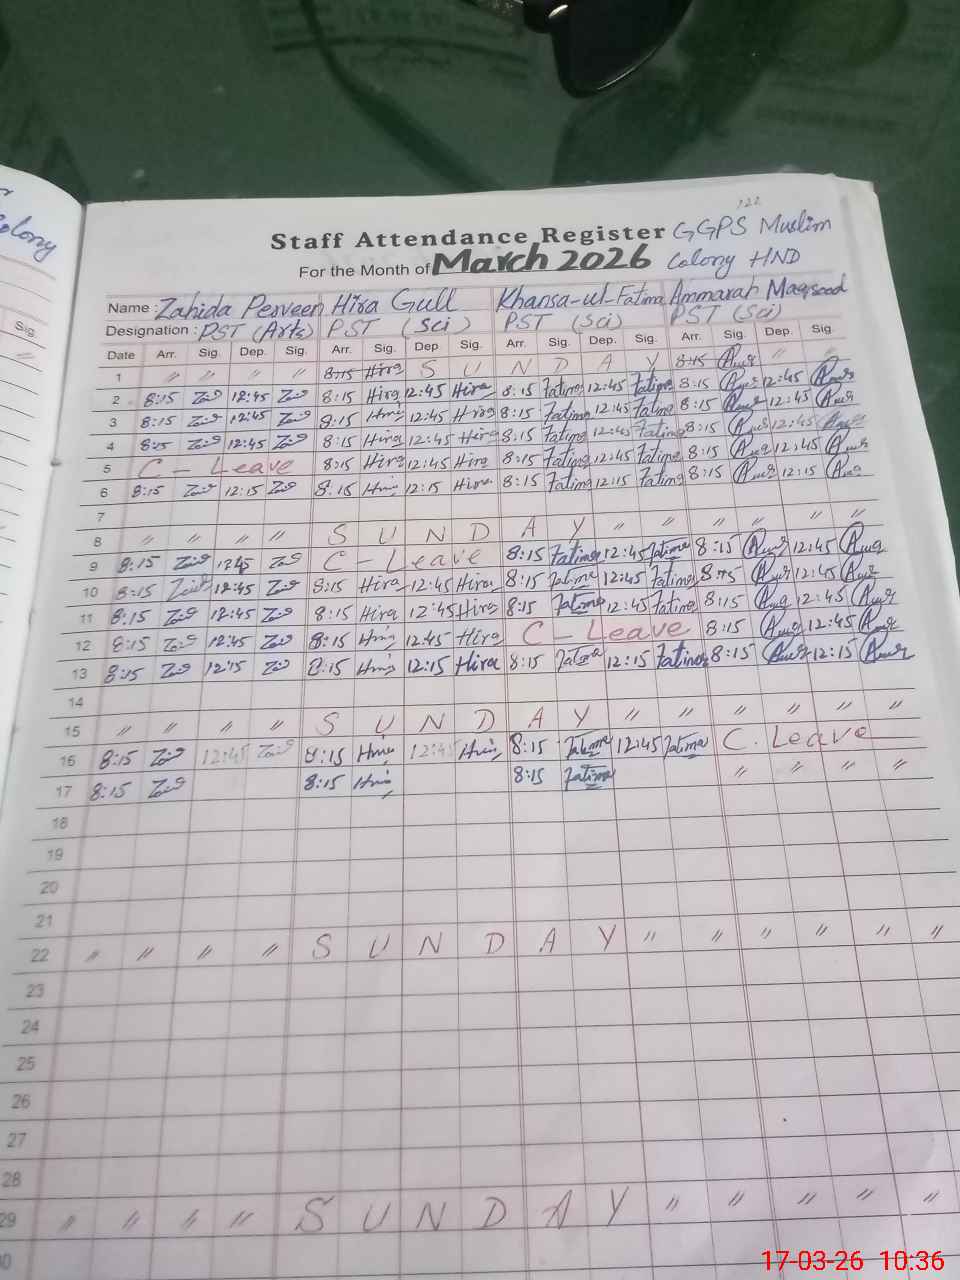 122
Staff Attendance Register GGPS Muslim
For the Month of March 2026 Colony HND
Colony
Name : Zahida Perveen Hira Gull Khansa-ul-Fatima Ammarah Maqsood
Designation : PST (Arts) PST (Sci) PST (Sci) PST (Sci)
Sig
Date Arr. Sig. Dep. Sig. Arr. Sig. Dep Sig. Arr. Sig. Dep. Sig. Arr. Sig. Dep. Sig
1 " " " " 8:15 Hira S U N D A Y 8:15 " "
2 8:15 12:45 8:15 Hira 12:45 Hira 8:15 Fatima 12:45 Fatima 8:15 12:45
3 8:15 12:45 8:15 12:45 Hira 8:15 Fatima 12:45 Fatima 8:15 12:45
4 8:15 12:45 8:15 Hira 12:45 Hira 8:15 Fatima 12:45 Fatima 8:15 12:45
5 C - Leave 8:15 Hira 12:45 Hira 8:15 Fatima 12:45 Fatima 8:15 12:45
6 8:15 12:15 8:15 12:15 Hira 8:15 Fatima 12:15 Fatima 8:15 12:15
7
8 " " " " S U N D A Y " " " " " "
9 8:15 12:45 C - Leave 8:15 Fatima 12:45 Fatima 8:15 12:45
10 8:15 12:45 8:15 Hira 12:45 Hira 8:15 Fatima 12:45 Fatima 8:15 12:45
11 8:15 12:45 8:15 Hira 12:45 Hira 8:15 Fatima 12:45 Fatima 8:15 12:45
12 8:15 12:45 8:15 12:45 Hira C - Leave 8:15 12:45
13 8:15 12:15 8:15 12:15 Hira 8:15 Fatima 12:15 Fatima 8:15 12:15
14
15 " " " " S U N D A Y " " " " " "
16 8:15 12:45 8:15 12:45 8:15 Fatima 12:45 Fatima C. Leave
17 8:15 8:15 8:15 Fatima " " " "
18
19
20
21
22 " " " " S U N D A Y " " " " " "
23
24
25
26
27
28
29 " " " " S U N D A Y " " " " "
17-03-26 10:36